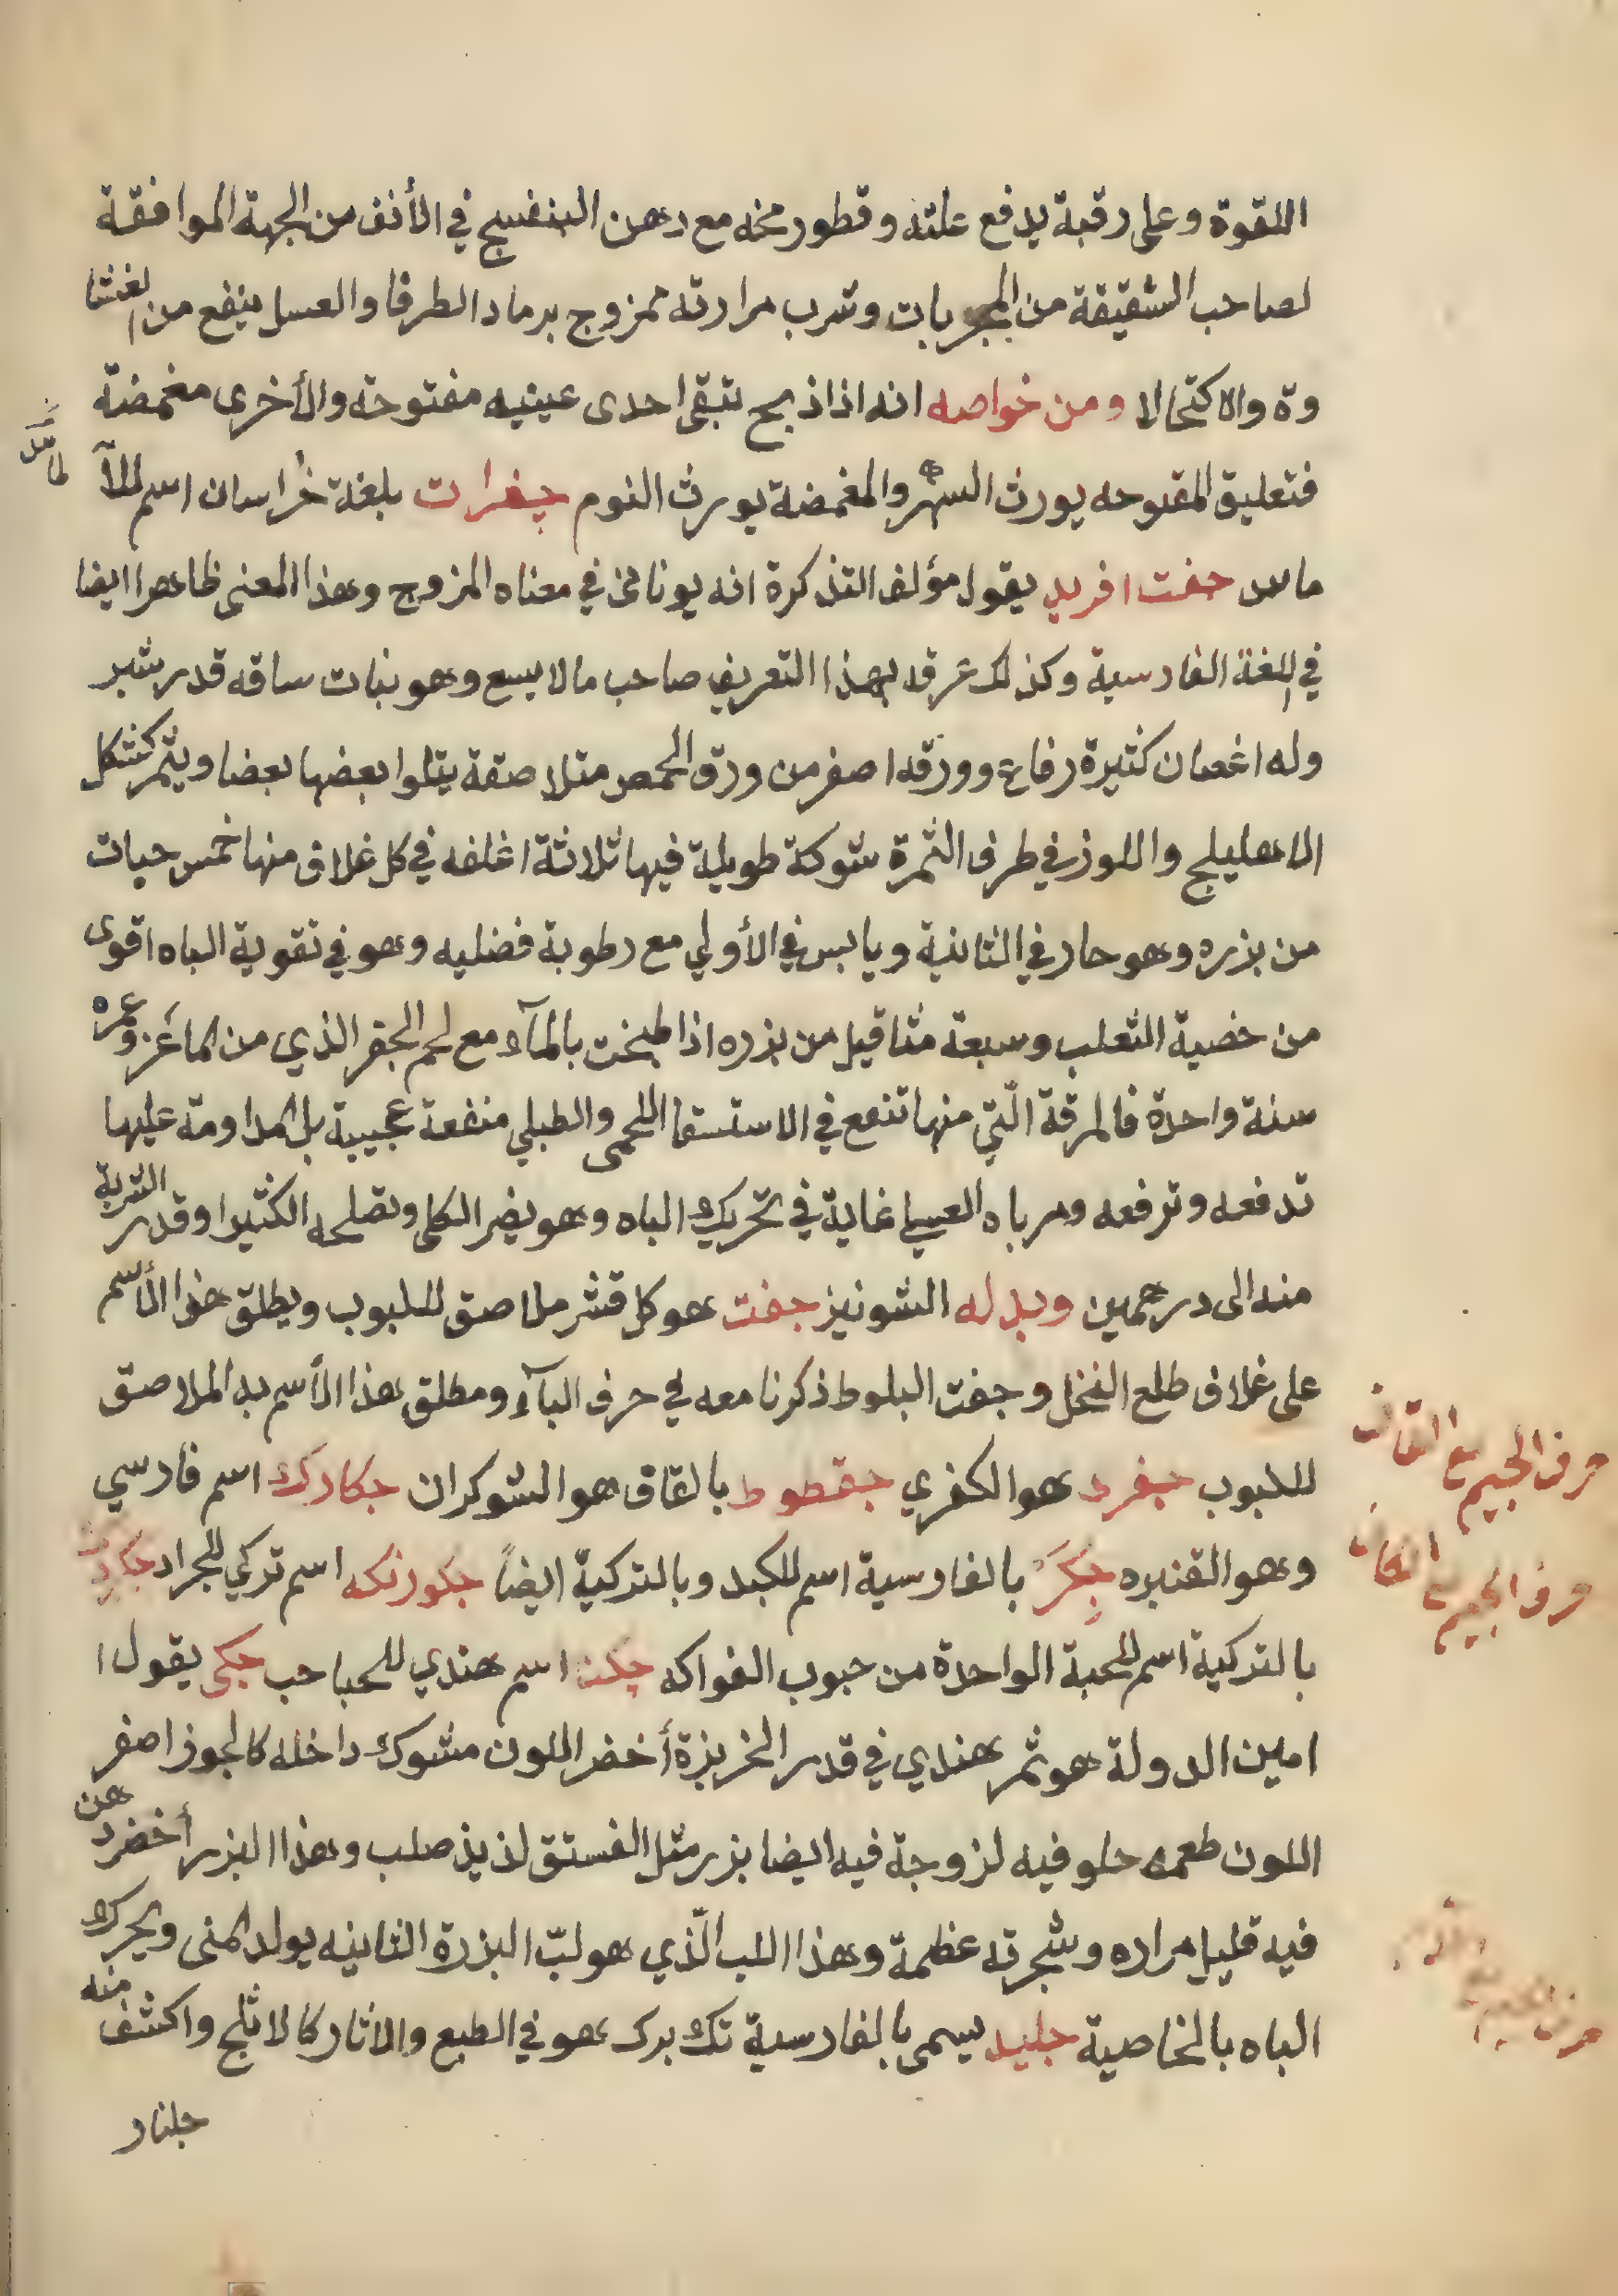 اللقوة وعلى رقبة يدفع علته وقطور مخه مع دهن البنفسج في الأنف من الجهة الموافقة
لصاحب الشقيقة من المجربات وشرب مرارته ممزوج برماد الطرفا والعسل ينفع من الغشا
وة والاكتحالا ومن خواصه انه اذا ذبح تبقى احدى عينيه مفتوحة والأخرى مغمضة
فتعليق المفتوحه يورث السهر والمغمضة يورث النوم جغرات بلغة خراسان اسم للآ
ماس جفت افريد يقول مؤلف التذكرة انه يوناني في معناه المزوج وهذا المعنى ظاهرا ايضا
في اللغة الفارسية وكذلك عرفه بهذا التعريف صاحب مالا يسع وهو نبات ساقه قدر شبر
وله اغصان كثيرة رفاع وورقه اصفر من ورق الحمص متلاصقة يتلوا بعضها بعضا ويثمر كشكل
الاهليلج واللوز في طرف الثمرة شوكة طويلة فيها ثلاثة اغلفه في كل غلاف منها خمس حبات
من بزره وهو حار في الثانية ويابس في الأولي مع رطوبة فضليه وهو في تقوية الباه اقوى
من خصية الثعلب وسبعة مثاقيل من بزره اذا طبخت بالمآء مع لحم الجفر الذي من الماعز وعمره
سنة واحدة فالمرقة الّتي منها تنفع في الاستسقا اللحمى والطبلي منفعة عجيبة بل المداومة عليها
تدفعه وترفعه ومرباه العسلي غاية في تحريك الباه وهو يضر الكلى وتصلحه الكثيرا وقدر الشربة
منه الى درهمين وبدله الشونيز جفت هو كل قشر ملاصق للبوب ويطلق هذا الأسم
على غلاف طلع النخل وجفت البلوط ذكرنا معه في حرف البآء ومطلق هذا الأسم به الملاصق
للبوب جفرد هو الكفري جقطوط بالقاف هو الشوكران جكارك اسم فارسي
وهو القنبره جِكَر بالفارسية اسم للكبد وبالتركية ايضاً جكورنكه اسم تركي للجراد جكردك
بالتركية اسم للحبة الواحدة من حبوب الفواكه جكنا اسم هندي للحباحب جكى يقول ا
امين الدولة هو ثمر هندي في قدر الخربزة أخضر اللون مشوك داخله كالجوز اصفر
اللون طعمه حلو فيه لزوجة فيه ايضا بزر مثل الفستق لذيذ صلب وهذا البزر أخضر دهن
فيه قليل مراره وشجرته عظمة وهذا اللب الّذي هو لبّ البزرة الثانيه يولد المنى ويحرك
الباه بالخاصية جليد يسمى بالفارسية تك برك هو في الطبع والاثار كالاثلج واكشف منه
جلنار
حرف الجيم مع القاف
حرف الجيم مع الكاف